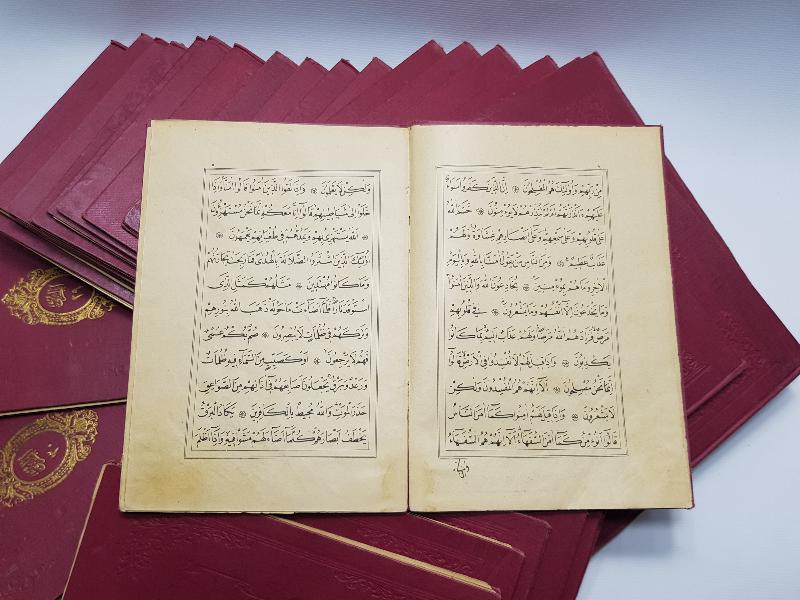 مِنْ رَبِّهِمْ وَاُولٰئِكَ هُمُ الْمُفْلِحُونَ ۞ اِنَّ الَّذِينَ كَفَرُوا سَوَاءٌ
عَلَيْهِمْ ءَاَنْذَرْتَهُمْ اَمْ لَمْ تُنْذِرْهُمْ لَا يُؤْمِنُونَ ۞ خَتَمَ اللّٰهُ
عَلٰى قُلُوبِهِمْ وَعَلٰى سَمْعِهِمْ وَعَلٰى اَبْصَارِهِمْ غِشَاوَةٌ وَلَهُمْ
عَذَابٌ عَظِيمٌ ۞ وَمِنَ النَّاسِ مَنْ يَقُولُ اٰمَنَّا بِاللّٰهِ وَبِالْيَوْمِ
الْاٰخِرِ وَمَا هُمْ بِمُؤْمِنِينَ ۞ يُخَادِعُونَ اللّٰهَ وَالَّذِينَ اٰمَنُوا
وَمَا يَخْدَعُونَ اِلَّا اَنْفُسَهُمْ وَمَا يَشْعُرُونَ ۞ فِي قُلُوبِهِمْ
مَرَضٌ فَزَادَهُمُ اللّٰهُ مَرَضًا وَلَهُمْ عَذَابٌ اَلِيمٌ بِمَا كَانُوا
يَكْذِبُونَ ۞ وَاِذَا قِيلَ لَهُمْ لَا تُفْسِدُوا فِي الْاَرْضِ قَالُوا
اِنَّمَا نَحْنُ مُصْلِحُونَ ۞ اَلَا اِنَّهُمْ هُمُ الْمُفْسِدُونَ وَلٰكِنْ
لَا يَشْعُرُونَ ۞ وَاِذَا قِيلَ لَهُمْ اٰمِنُوا كَمَا اٰمَنَ النَّاسُ
قَالُوا اَنُؤْمِنُ كَمَا اٰمَنَ السُّفَهَاءُ اَلَا اِنَّهُمْ هُمُ السُّفَهَاءُ
وَلٰكِنْ لَا يَعْلَمُونَ ۞ وَاِذَا لَقُوا الَّذِينَ اٰمَنُوا قَالُوا اٰمَنَّا وَاِذَا
خَلَوْا اِلٰى شَيَاطِينِهِمْ قَالُوا اِنَّا مَعَكُمْ اِنَّمَا نَحْنُ مُسْتَهْزِؤُنَ
۞ اَللّٰهُ يَسْتَهْزِئُ بِهِمْ وَيَمُدُّهُمْ فِي طُغْيَانِهِمْ يَعْمَهُونَ ۞
اُولٰئِكَ الَّذِينَ اشْتَرَوُا الضَّلَالَةَ بِالْهُدٰى فَمَا رَبِحَتْ تِجَارَتُهُمْ
وَمَا كَانُوا مُهْتَدِينَ ۞ مَثَلُهُمْ كَمَثَلِ الَّذِي
اسْتَوْقَدَ نَارًا فَلَمَّا اَضَاءَتْ مَا حَوْلَهُ ذَهَبَ اللّٰهُ بِنُورِهِمْ
وَتَرَكَهُمْ فِي ظُلُمَاتٍ لَا يُبْصِرُونَ ۞ صُمٌّ بُكْمٌ عُمْيٌ
فَهُمْ لَا يَرْجِعُونَ ۞ اَوْ كَصَيِّبٍ مِنَ السَّمَاءِ فِيهِ ظُلُمَاتٌ
وَرَعْدٌ وَبَرْقٌ يَجْعَلُونَ اَصَابِعَهُمْ فِي اٰذَانِهِمْ مِنَ الصَّوَاعِقِ
حَذَرَ الْمَوْتِ وَاللّٰهُ مُحِيطٌ بِالْكَافِرِينَ ۞ يَكَادُ الْبَرْقُ
يَخْطَفُ اَبْصَارَهُمْ كُلَّمَا اَضَاءَ لَهُمْ مَشَوْا فِيهِ وَاِذَا اَظْلَمَ